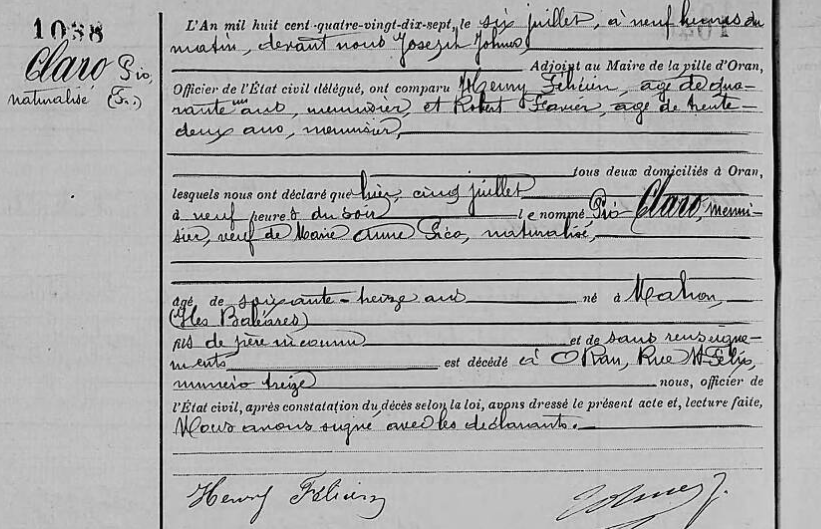 1088
Claro Pio,
naturalisé (Fr.)
L'An mil huit cent quatre-vingt-dix-sept, le six juillet, à neuf heures du
matin, devant nous Joseph
Adjoint au Maire de la ville d'Oran,
Officier de l'État civil délégué, ont comparu Henry Félicien, âgé de qua-
rante ans, menuisier, et Robert Xavier, âgé de trente-
deux ans, menuisier,
tous deux domiciliés à Oran,
lesquels nous ont déclaré que hier, cinq juillet
à neuf heures du soir le nommé Pio Claro, menui-
sier, veuf de Marie Anne Pico, naturalisé,
âgé de soixante-treize ans né à Mahon,
(Iles Baléares)
fils de père inconnu et de sans renseigne-
ments est décédé à Oran, Rue St Félix,
numéro treize nous, officier de
l'État civil, après constatation du décès selon la loi, avons dressé le présent acte et, lecture faite,
Nous avons signé avec les déclarants.
Henry Félicien